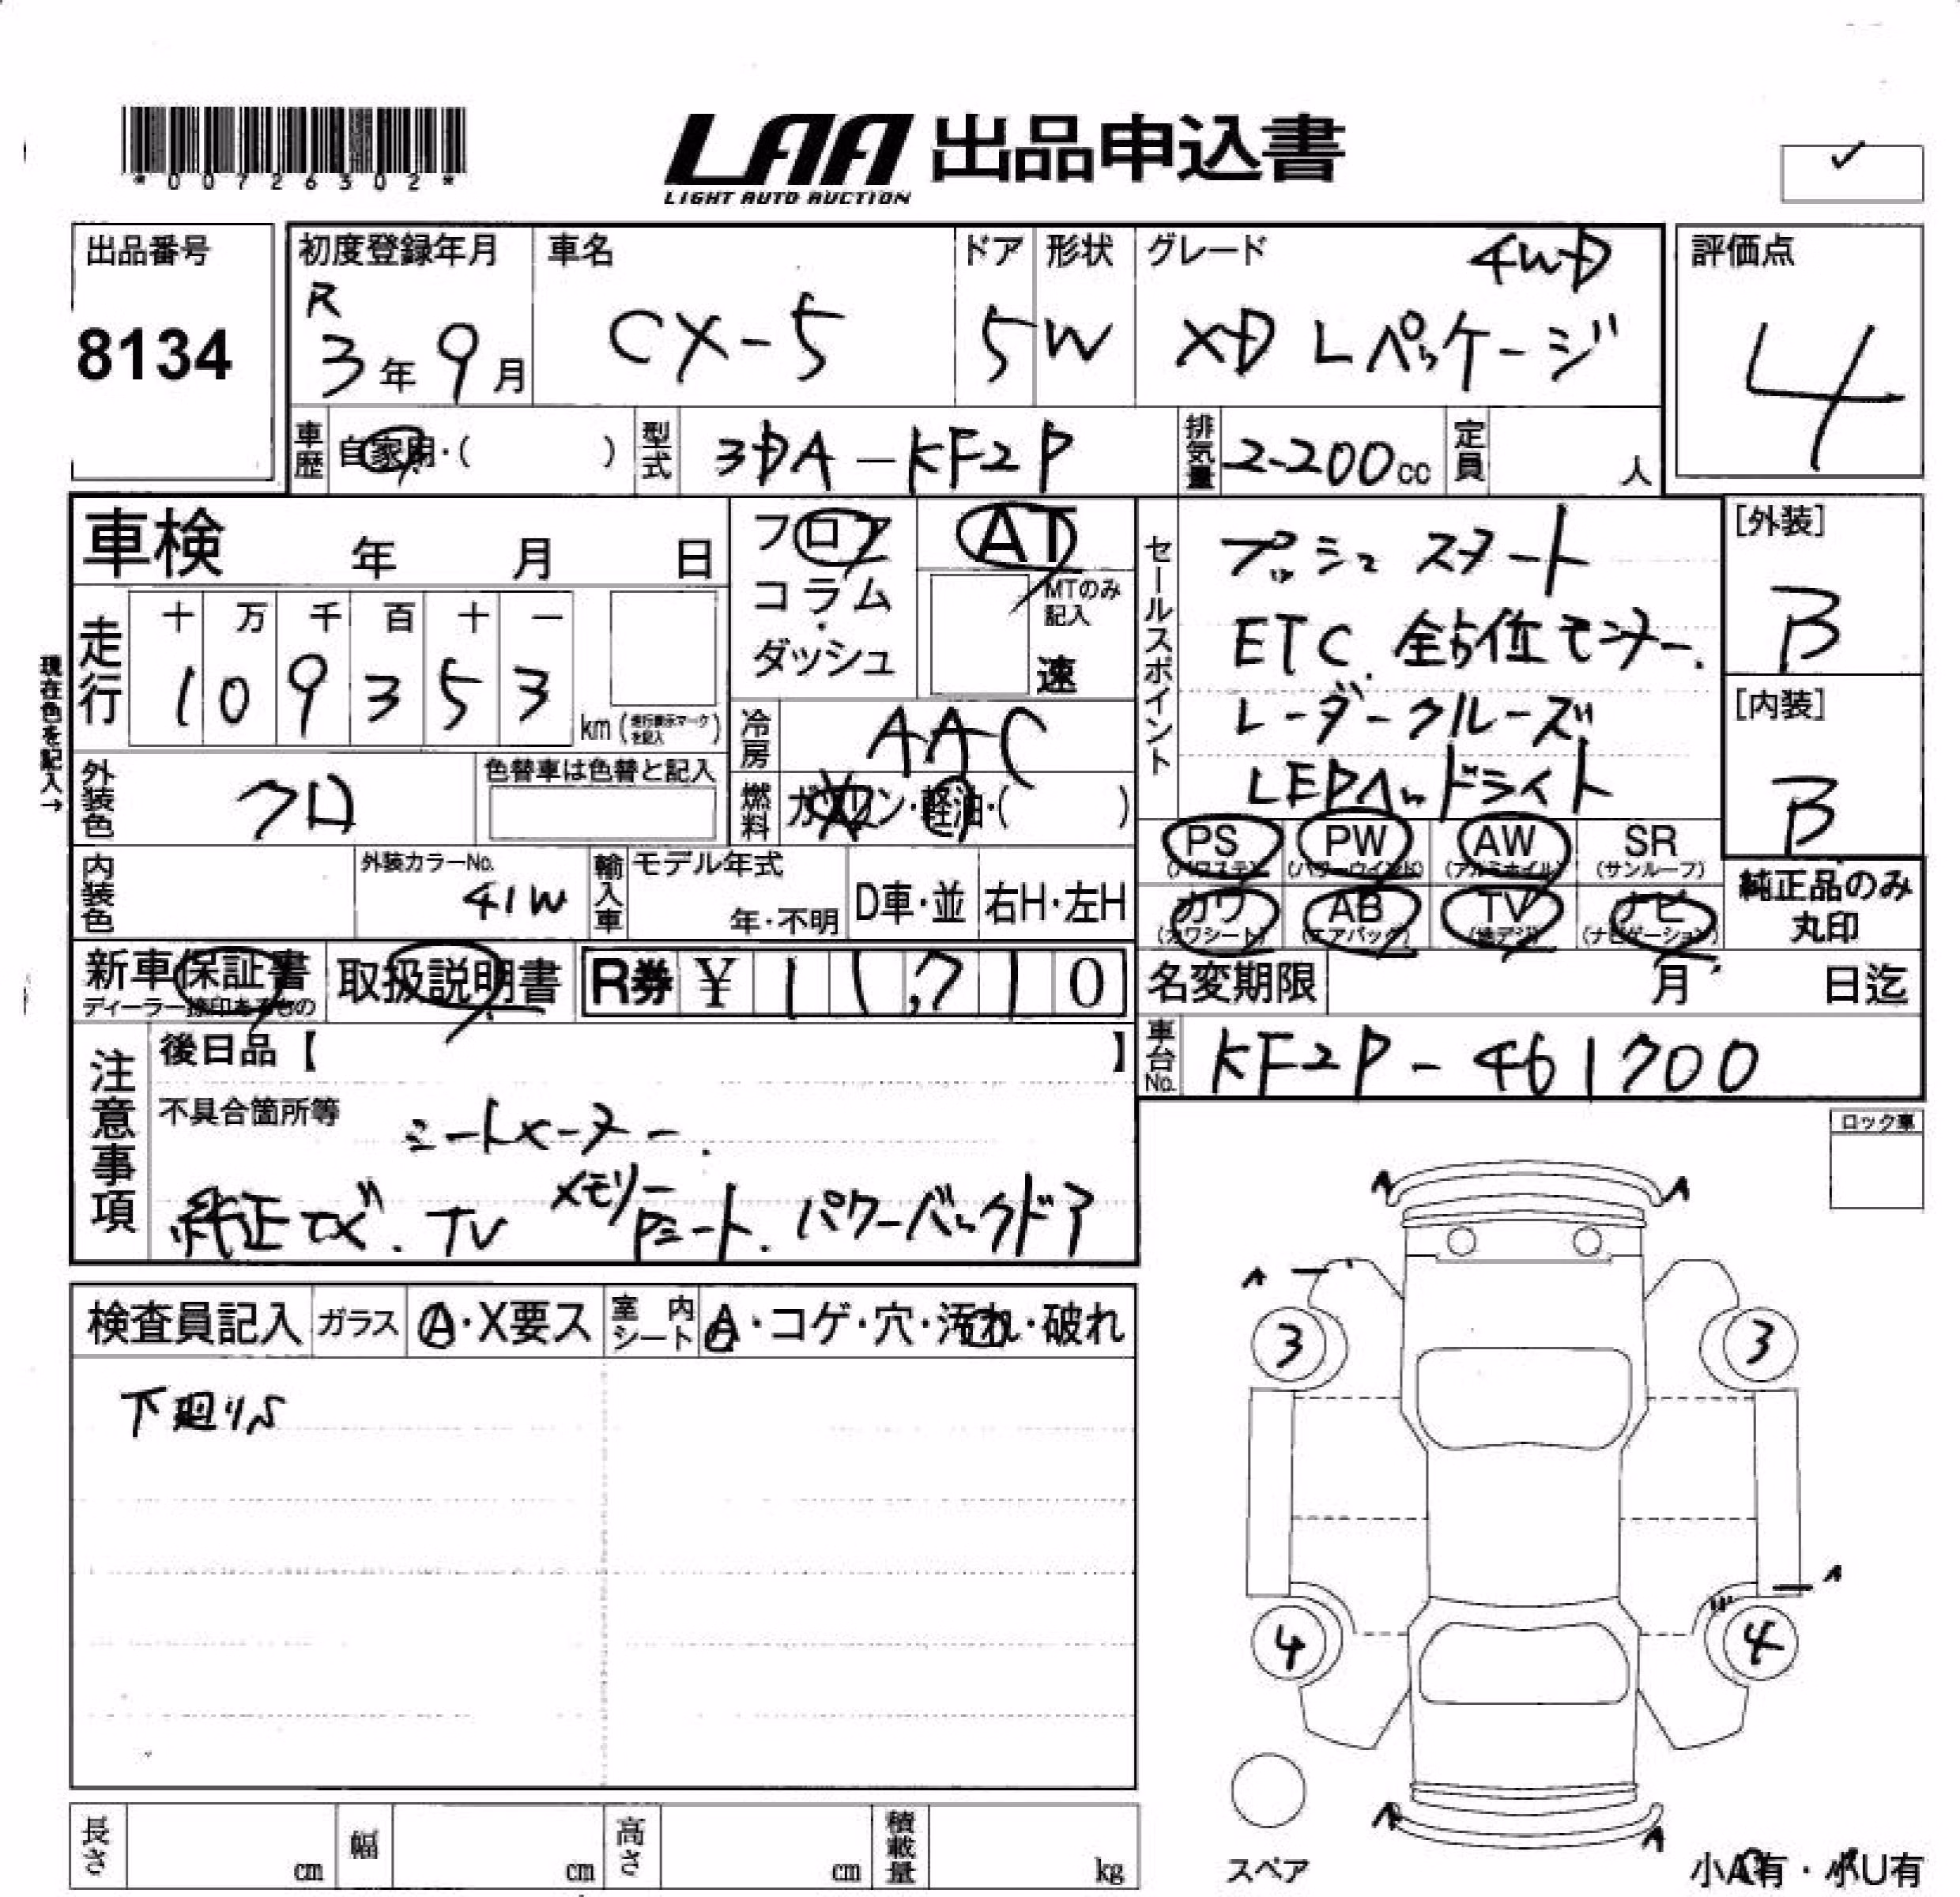 *00726302*
LAA 出品申込書
LIGHT AUTO AUCTION
✓
出品番号
8134
初度登録年月
R
3年 9月
車名
CX-5
ドア
5
形状
W
グレード 4WD
XD Lパッケージ
評価点
4
車歴 自家用・( )
型式 3DA-KF2P
排気量 2200cc
定員 人
車検 年 月 日
フロア
コラム
ダッシュ
AT
MTのみ記入
速
現在色を記入→
走行
十 万 千 百 十 一
1 0 9 3 5 3
km (走行表示マークを記入)
冷房 AAC
外装色 クロ
色替車は色替と記入
燃料 ガソリン・軽油・( )
内装色
外装カラーNo.
41W
輸入車 モデル年式
年・不明
D車・並
右H・左H
セールスポイント
プッシュスタート
ETC. 全方位モニター.
レーダークルーズ
LEDヘッドライト
[外装]
B
[内装]
B
PS (パワステ)
PW (パワーウインド)
AW (アルミホイル)
SR (サンルーフ)
カワ (カワシート)
AB (エアバック)
TV (地デジ)
ナビ (ナビゲーション)
純正品のみ
丸印
新車保証書
ディーラー捺印あるもの
取扱説明書
R券 ¥ 11,710
名変期限 月 日迄
車台No. KF2P-461700
注意事項
後日品【 】
不具合箇所等
シートヒーター.
純正ナビ. TV メモリーPシート. パワーバックドア
ロック車
検査員記入
ガラス A・X要ス
室内シート A・コゲ・穴・汚れ・破れ
下廻りS
A A
A
3 3
A
4 4
A A
スペア
小A有・小U有
長さ cm
幅 cm
高さ cm
積載量 kg